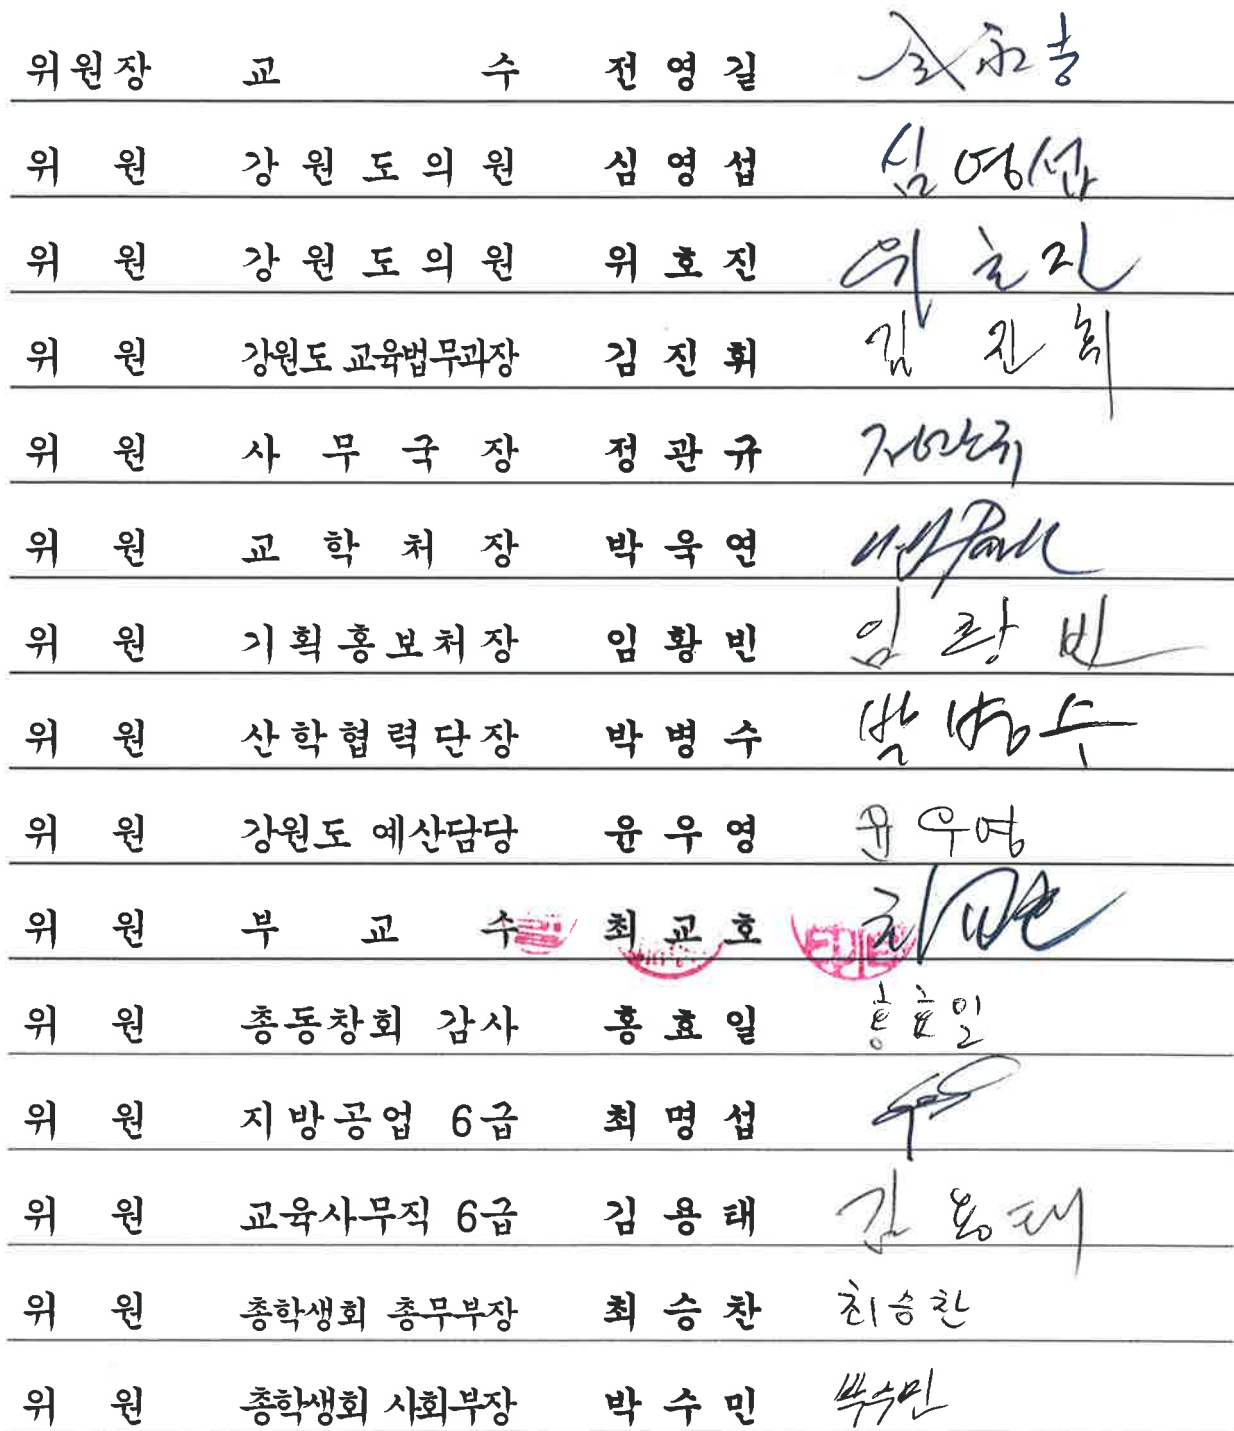 위원장 교 수 전영길
위 원 강원도의원 심영섭 심영섭
위 원 강원도의원 위호진 위호진
위 원 강원도 교육법무과장 김진휘 김진휘
위 원 사무국장 정관규 정관규
위 원 교학처장 박욱연 Park
위 원 기획홍보처장 임황빈 임황빈
위 원 산학협력단장 박병수 박병수
위 원 강원도 예산담당 윤우영 윤우영
위 원 부교수 최교호
위 원 총동창회 감사 홍효일 홍효일
위 원 지방공업 6급 최명섭
위 원 교육사무직 6급 김용태 김용태
위 원 총학생회 총무부장 최승찬 최승찬
위 원 총학생회 사회부장 박수민 박수민